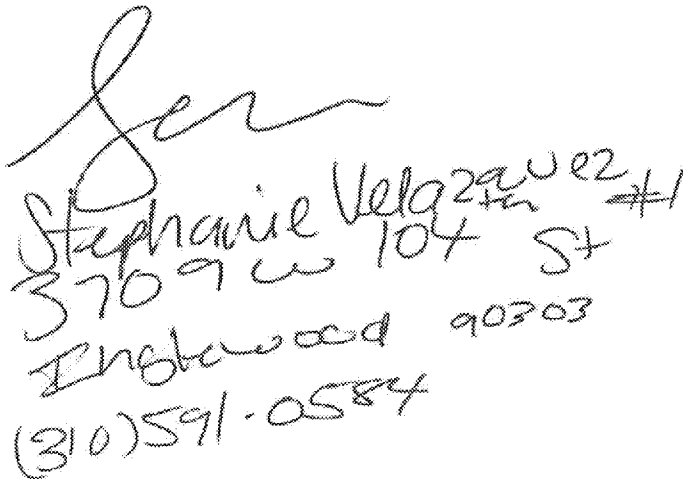 Stephanie Velazquez
3709 W 104th St #1
Inglewood 90303
(310)591-0584